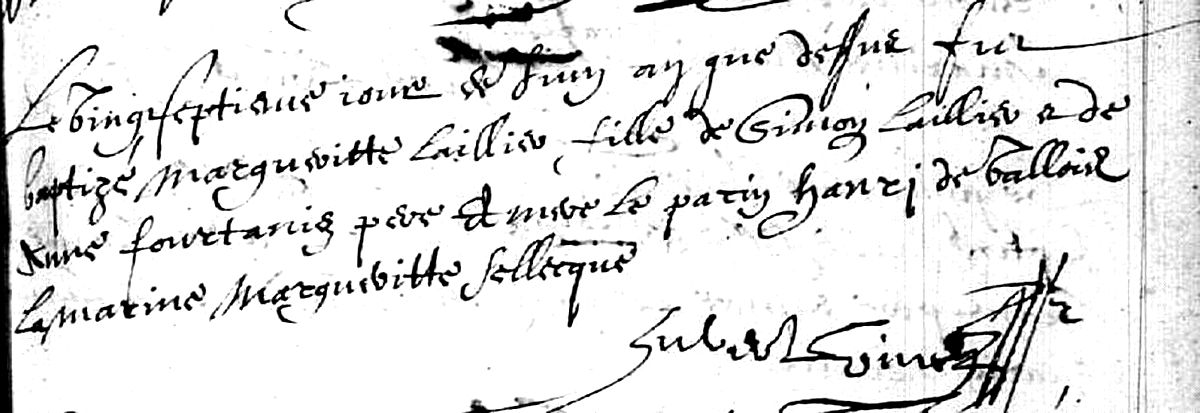 Le vingtseptieme iour de Juin an que dessus fut
baptizé Margueritte Laillier fille de Simon Laillier & de
Anne fourtanis pere & mere le parin Hanri de Vallois
la marine Marguevitte sellecque
Hubert